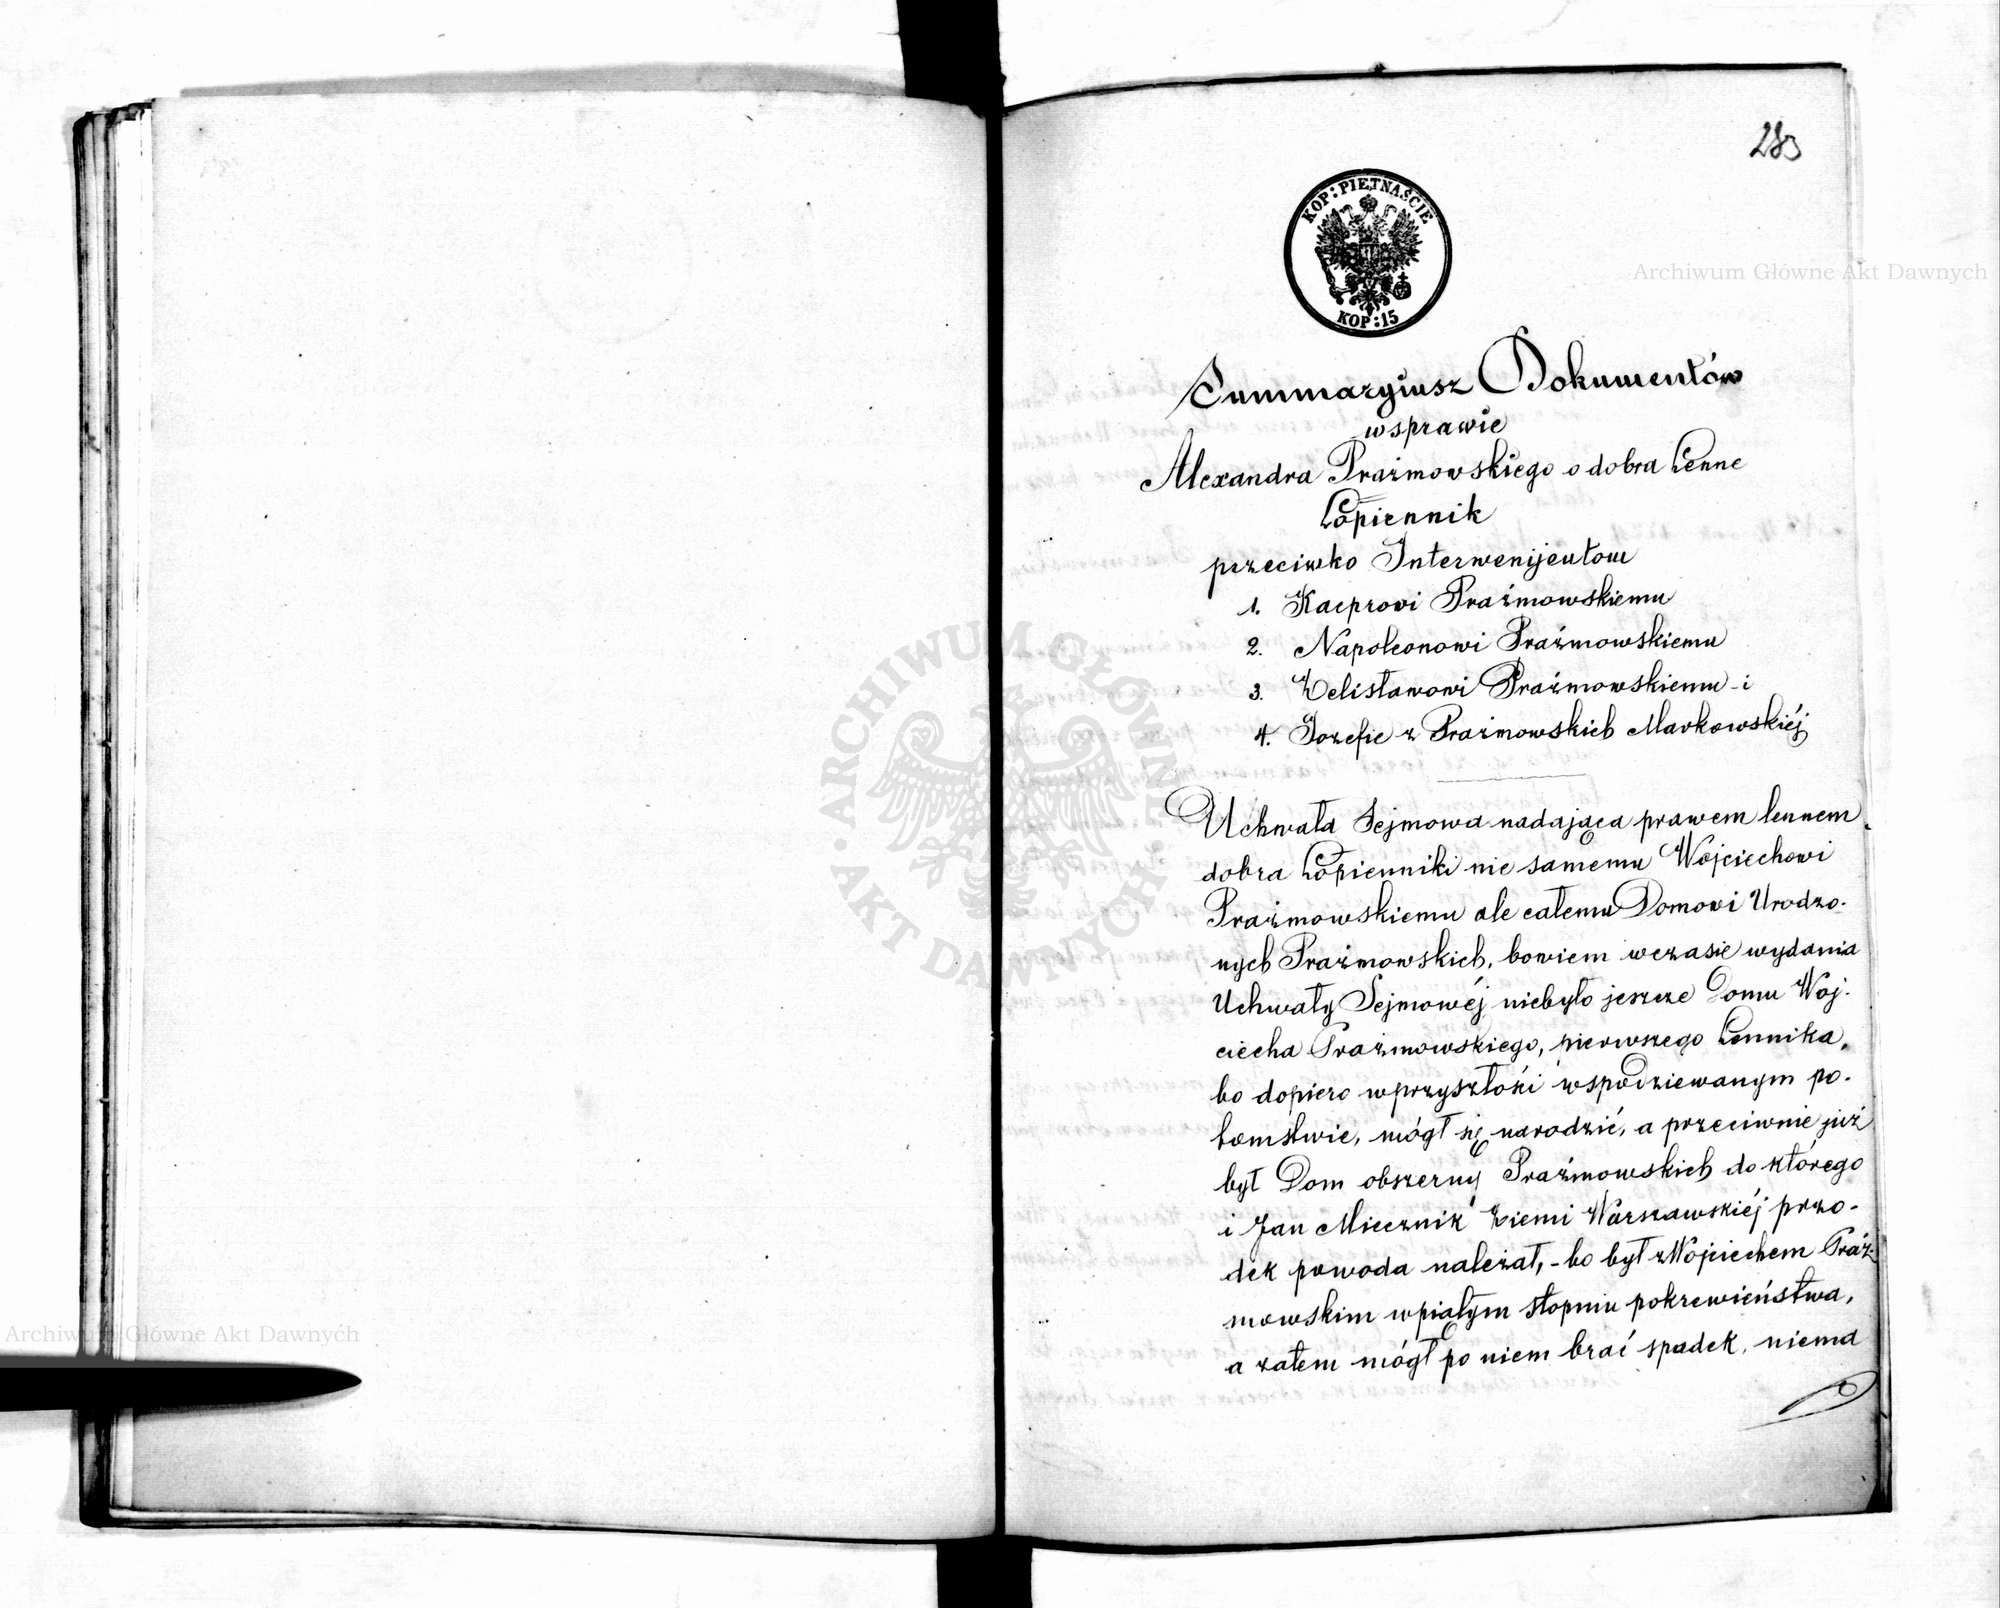 283
KOP: PIĘTNAŚCIE
KOP: 15
Summaryiusz Dokumentów
w sprawie
Alexandra Prażmowskiego o dobra Lenne
Łopiennik
przeciwko Interwenijentom
1. Kacprowi Prażmowskiemu
2. Napoleonowi Prażmowskiemu
3. Zelisławowi Prażmowskiemu i
4. Jozefie z Prażmowskich Markowskiéj
Uchwała Sejmowa nadająca prawem lennem
dobra Łopienniki nie samemu Wojciechowi
Prażmowskiemu ale całemu Domowi Urodzo-
nych Prażmowskich, bowiem w czasie wydania
Uchwały Sejmowéj niebyło jeszcze Domu Woj-
ciecha Prażmowskiego, pierwszego Lennika,
bo dopiero w przyszłości w spodziewanym po-
tomstwie, mógł się narodzić, a przeciwnie już
był Dom obszerny Prażmowskich do którego
i Jan Miecznik Ziemi Warszawskiéj przo-
dek powoda należał, - bo był z Wojciechem Praż-
mowskim w piątym stopniu pokrewieństwa,
a zatem mógł po niem brać spadek, niema
Archiwum Główne Akt Dawnych
Archiwum Główne Akt Dawnych
ARCHIWUM GŁÓWNE
AKT DAWNYCH